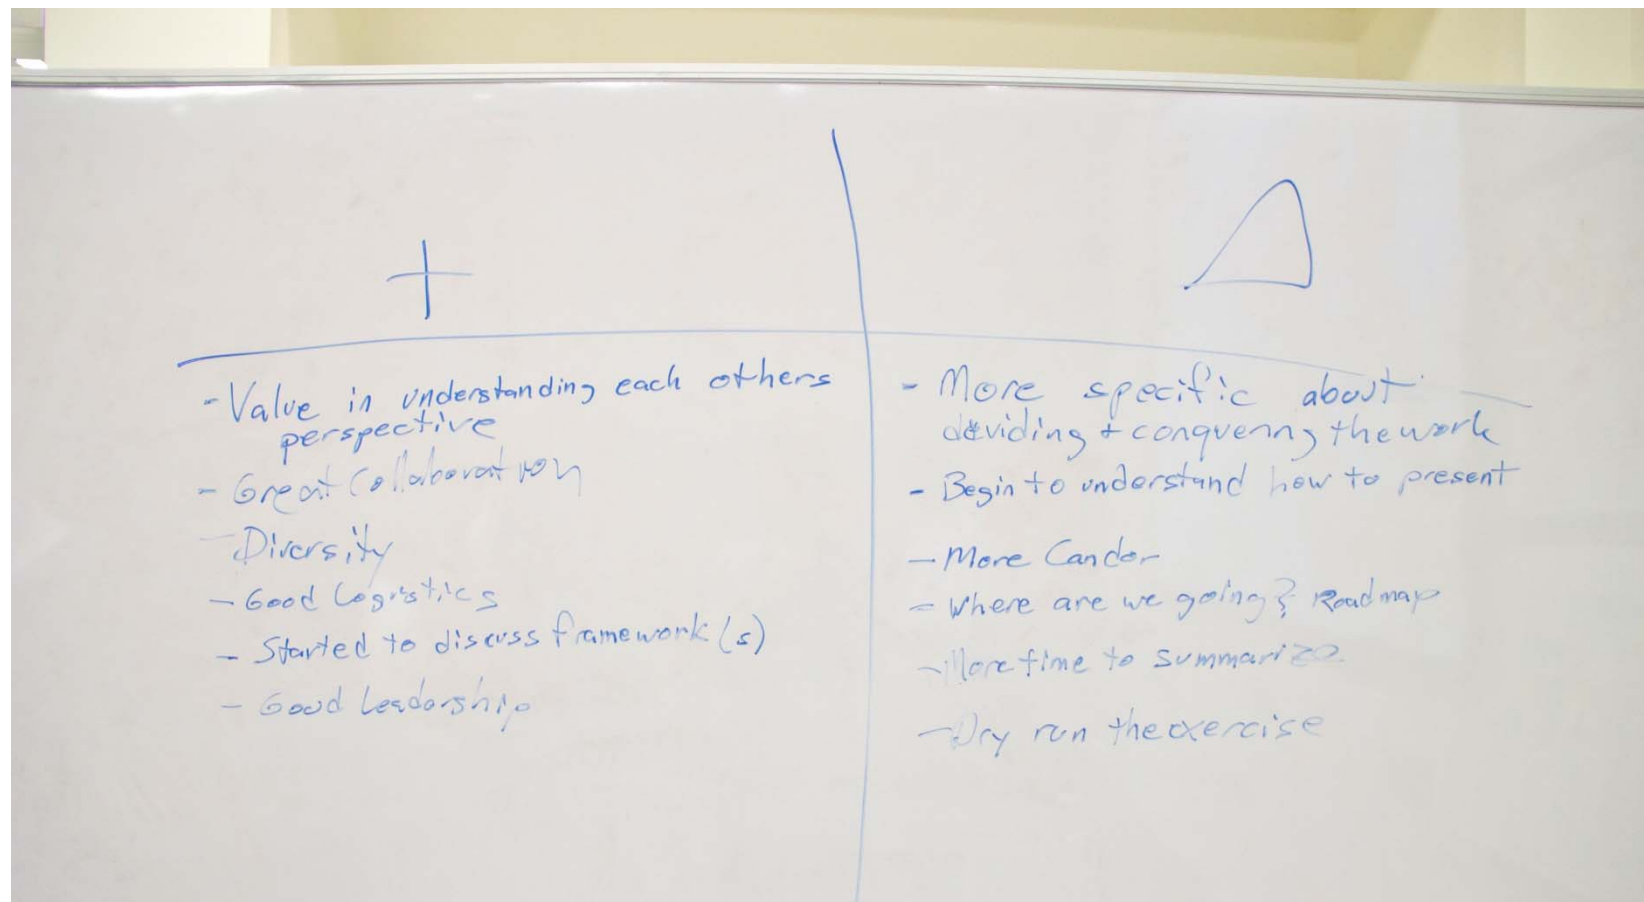 +
- Value in understanding each others
perspective
- Great Collaboration
- Diversity
- Good Logistics
- Started to discuss framework(s)
- Good Leadership
Δ
- More specific about
deviding + conquering the work
- Begin to understand how to present
- More Candor
- Where are we going? Roadmap
- More time to summarize
- Dry run the exercise